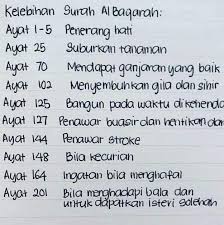 Kelebihan Surah Al Baqarah:
Ayat 1-5 Penerang hati
Ayat 25 Suburkan tanaman
Ayat 70 Mendapat ganjaran yang baik
Ayat 102 Menyembuhkan gila dan sihir
Ayat 125 Bangun pada waktu dikehenda
Ayat 127 Penawar buasir dan hentikan dar
Ayat 144 Penawar stroke
Ayat 148 Bila kecurian
Ayat 164 Ingatan bila menghafal
Ayat 201 Bila menghadapi bala dan
untuk dapatkan isteri solehah